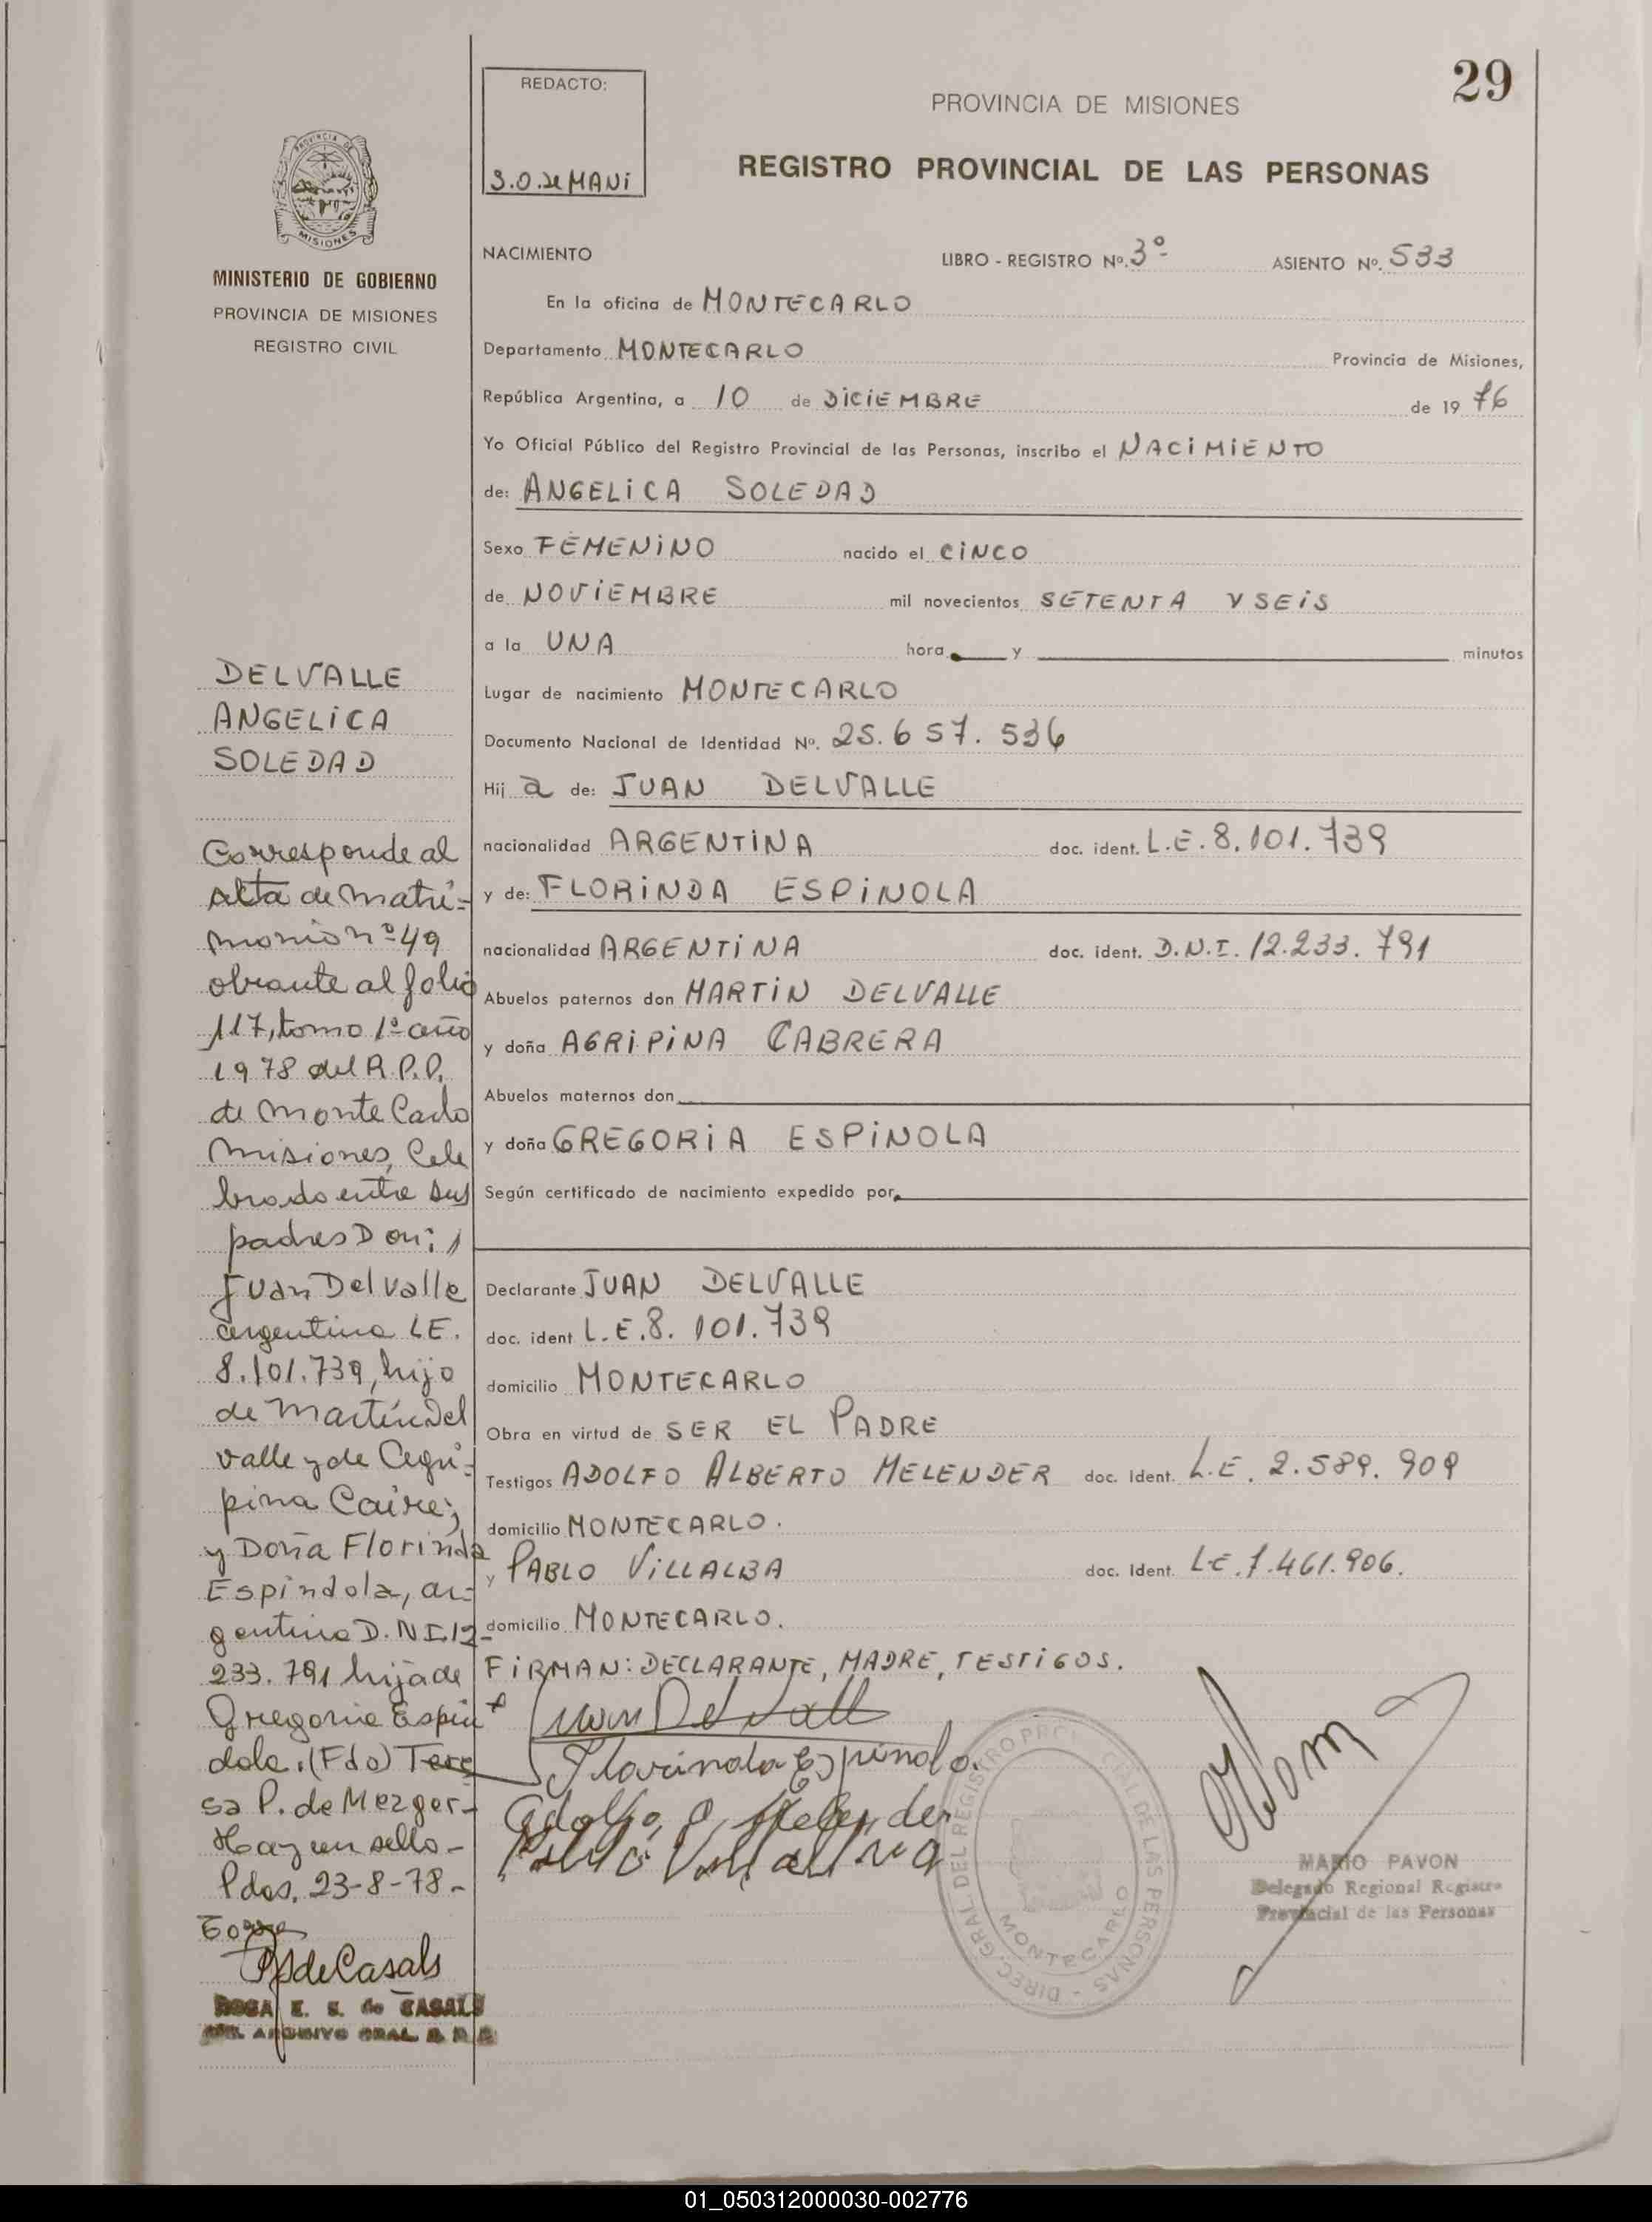 29
REDACTO:
S.O. de MANI
PROVINCIA DE MISIONES
REGISTRO PROVINCIAL DE LAS PERSONAS
PROVINCIA DE
MISIONES
MINISTERIO DE GOBIERNO
PROVINCIA DE MISIONES
REGISTRO CIVIL
NACIMIENTO LIBRO - REGISTRO Nº. 3º- ASIENTO Nº. 533
En la oficina de MONTECARLO
Departamento MONTECARLO Provincia de Misiones,
República Argentina, a 10 de DICIEMBRE de 19 76
Yo Oficial Público del Registro Provincial de las Personas, inscribo el NACIMIENTO
de: ANGELICA SOLEDAD
Sexo FEMENINO nacido el CINCO
de NOVIEMBRE mil novecientos SETENTA Y SEIS
a la UNA hora y minutos
Lugar de nacimiento MONTECARLO
Documento Nacional de Identidad Nº. 25.657.536
Hij a de: JUAN DELVALLE
nacionalidad ARGENTINA doc. ident. L.E. 8.101.739
y de: FLORINDA ESPINOLA
nacionalidad ARGENTINA doc. ident. D.N.I. 12.233.791
Abuelos paternos don MARTIN DELVALLE
y doña AGRIPINA CABRERA
Abuelos maternos don
y doña GREGORIA ESPINOLA
Según certificado de nacimiento expedido por
Declarante JUAN DELVALLE
doc. ident L.E. 8.101.739
domicilio MONTECARLO
Obra en virtud de SER EL PADRE
Testigos ADOLFO ALBERTO MELENDER doc. Ident. L.E. 2.589.909
domicilio MONTECARLO.
y PABLO VILLALBA doc. Ident. L.E. 7.461.906.
domicilio MONTECARLO.
FIRMAN: DECLARANTE, MADRE, TESTIGOS.
Juan Delvalle
Florinda Espinola
Adolfo A Melender
Pablo Villalba
DIREC. GRAL. DEL REGISTRO PROVINCIAL DE LAS PERSONAS -
MONTECARLO
MARIO PAVON
Delegado Regional Registro
Provincial de las Personas
DELVALLE
ANGELICA
SOLEDAD
Corresponde al
Acta de Matri-
monio nº 49
obrante al folio
117, tomo 1º año
1978 del R.P.P.
de Monte Carlo
Misiones, Cele
brado entre sus
padres Don;
Juan Del valle
argentino L.E.
8.101.739, hijo
de Martín Del
valle y de Agri-
pina
y Doña Florinda
Espíndola, ar-
gentina D.N.I. 12-
233.791 hija de
Gregoria Espín
dola. (Fdo) Tere
sa P. de Mezger-
Hay un sello-
Pdas. 23-8-78-
RSdeCasals
ROSA E. S. de CASALS
ARCHIVO GRAL. R. P. P.
01_050312000030-002776